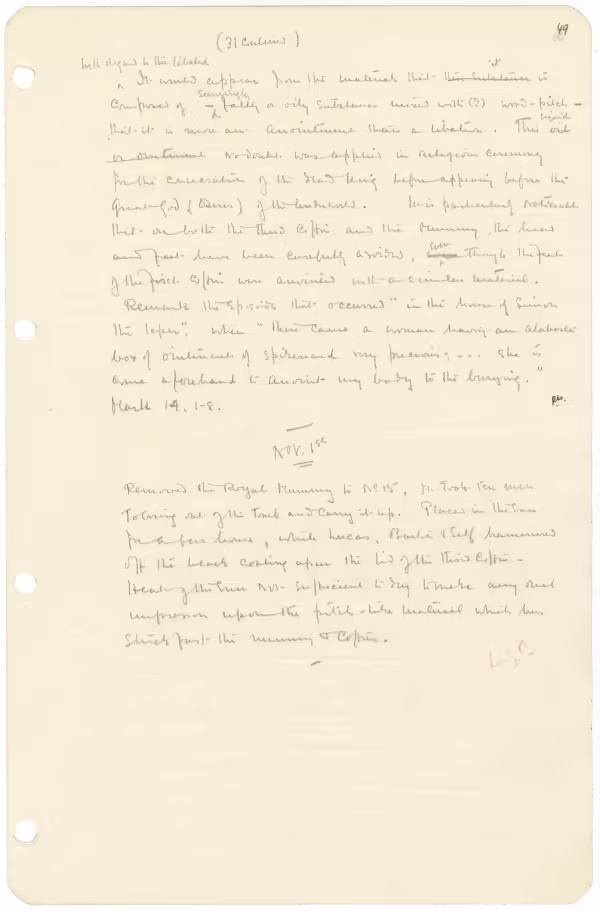 49
(31 continued)
With regard to this libation
It would appear from the material that this substance it is
composed of seemingly fatty or oily substance mixed with (?) wood-pitch -
that it is more an anointment than a libation. This liquid
or ointment no doubt was applied in religious ceremony
for the consecration of the dead King before appearing before the
Great God (Osiris) of the Underworld. It is particularly noticeable
that on both the third Coffin and the Mummy, the head
and feet have been carefully avoided, even though the feet
of the first Coffin were anointed with a similar material.
Remark the Episode that occurred "in the house of Simon
the leper", when "there came a woman having an alabaster
box of ointment of spikenard very precious; ... she is
come aforehand to anoint my body to the burying."
Mark 14, 1-8.
Nov. 1st
Removed the Royal Mummy to No 15. It took ten men
to bring out of the Tomb and carry it up. Placed in the sun
for a few hours, while Lucas, Burton & Self hammered
off the black coating upon the lid of the third Coffin -
Heat of the Sun not sufficient to-day to make any real
impression upon the pitch-like material which has
stuck fast the mummy & Coffins.